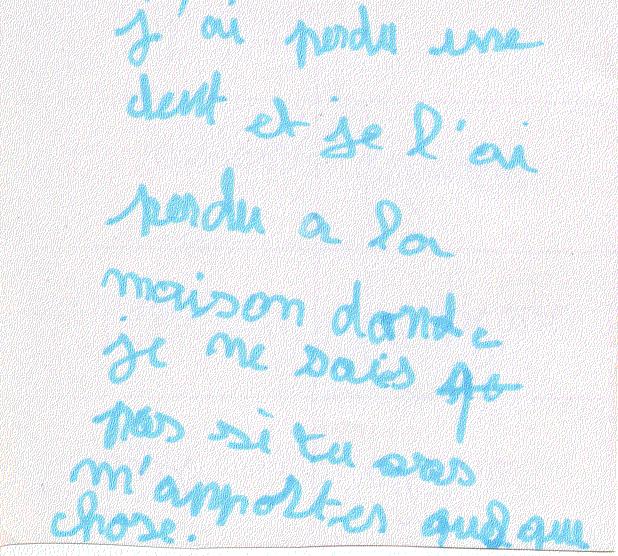 j'ai perdu une
dent et je l'ai
perdu a la
maison donc
je ne sais
pas si tu vas
m'apportes quelque
chose.